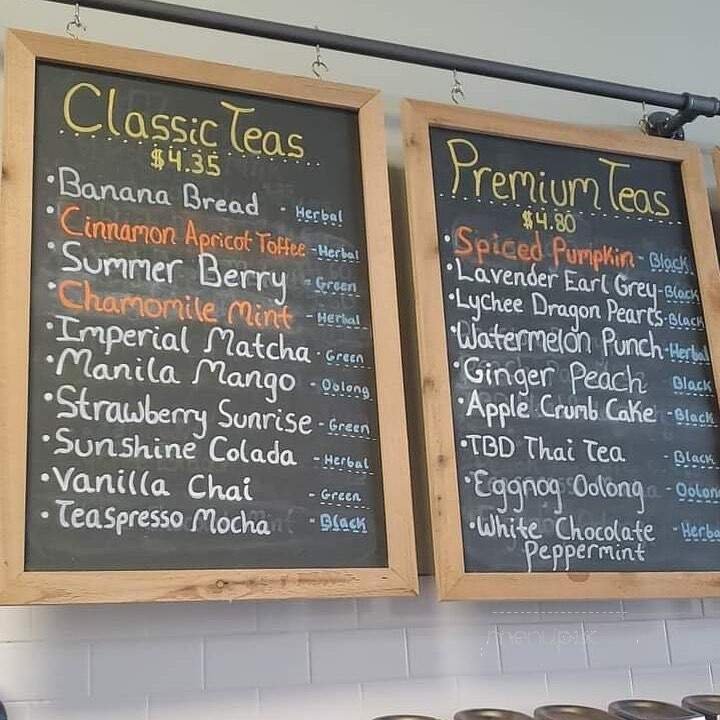 Classic Teas
$4.35
•Banana Bread - Herbal
•Cinnamon Apricot Toffee - Herbal
•Summer Berry - Green
•Chamomile Mint - Herbal
•Imperial Matcha - Green
•Manila Mango - Oolong
•Strawberry Sunrise - Green
•Sunshine Colada - Herbal
•Vanilla Chai - Green
•Teaspresso Mocha - Black
Premium Teas
$4.80
•Spiced Pumpkin - Black
•Lavender Earl Grey - Black
•Lychee Dragon Pearls - Black
•Watermelon Punch - Herbal
•Ginger Peach Black
•Apple Crumb Cake - Black
•TBD Thai Tea - Black
•Eggnog Oolong - Oolon
•White Chocolate - Herba
Peppermint
menupix